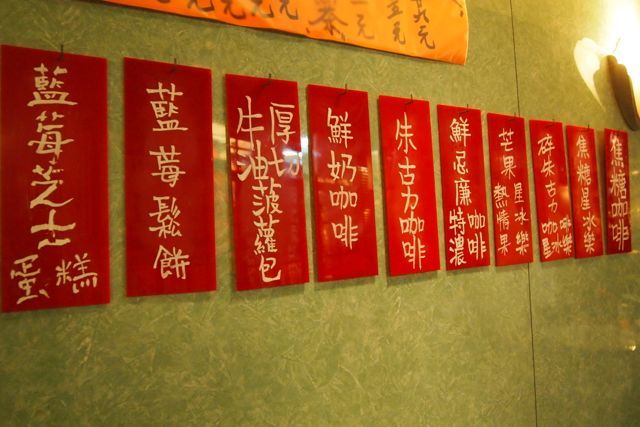 藍莓芝士蛋糕
藍莓鬆餅
厚切牛油菠蘿包
鮮奶咖啡
朱古力咖啡
鮮忌廉特濃咖啡
芒果熱情果星冰樂
碎朱古力咖啡星冰樂
焦糖星冰樂
焦糖咖啡